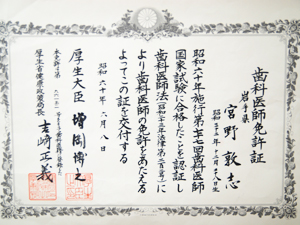 歯科医師免許証
岩手県
宮野敦志
昭和六十年施行第七七回歯科医師
国家試験に合格したことを認証し
歯科医師法(昭和二十三年法律第二百二号)に
より歯科医師の免許をあたえる
よってこの証を交付する
昭和六十年六月八日
厚生大臣 増岡博之
厚生省健康政策局長
吉崎正義